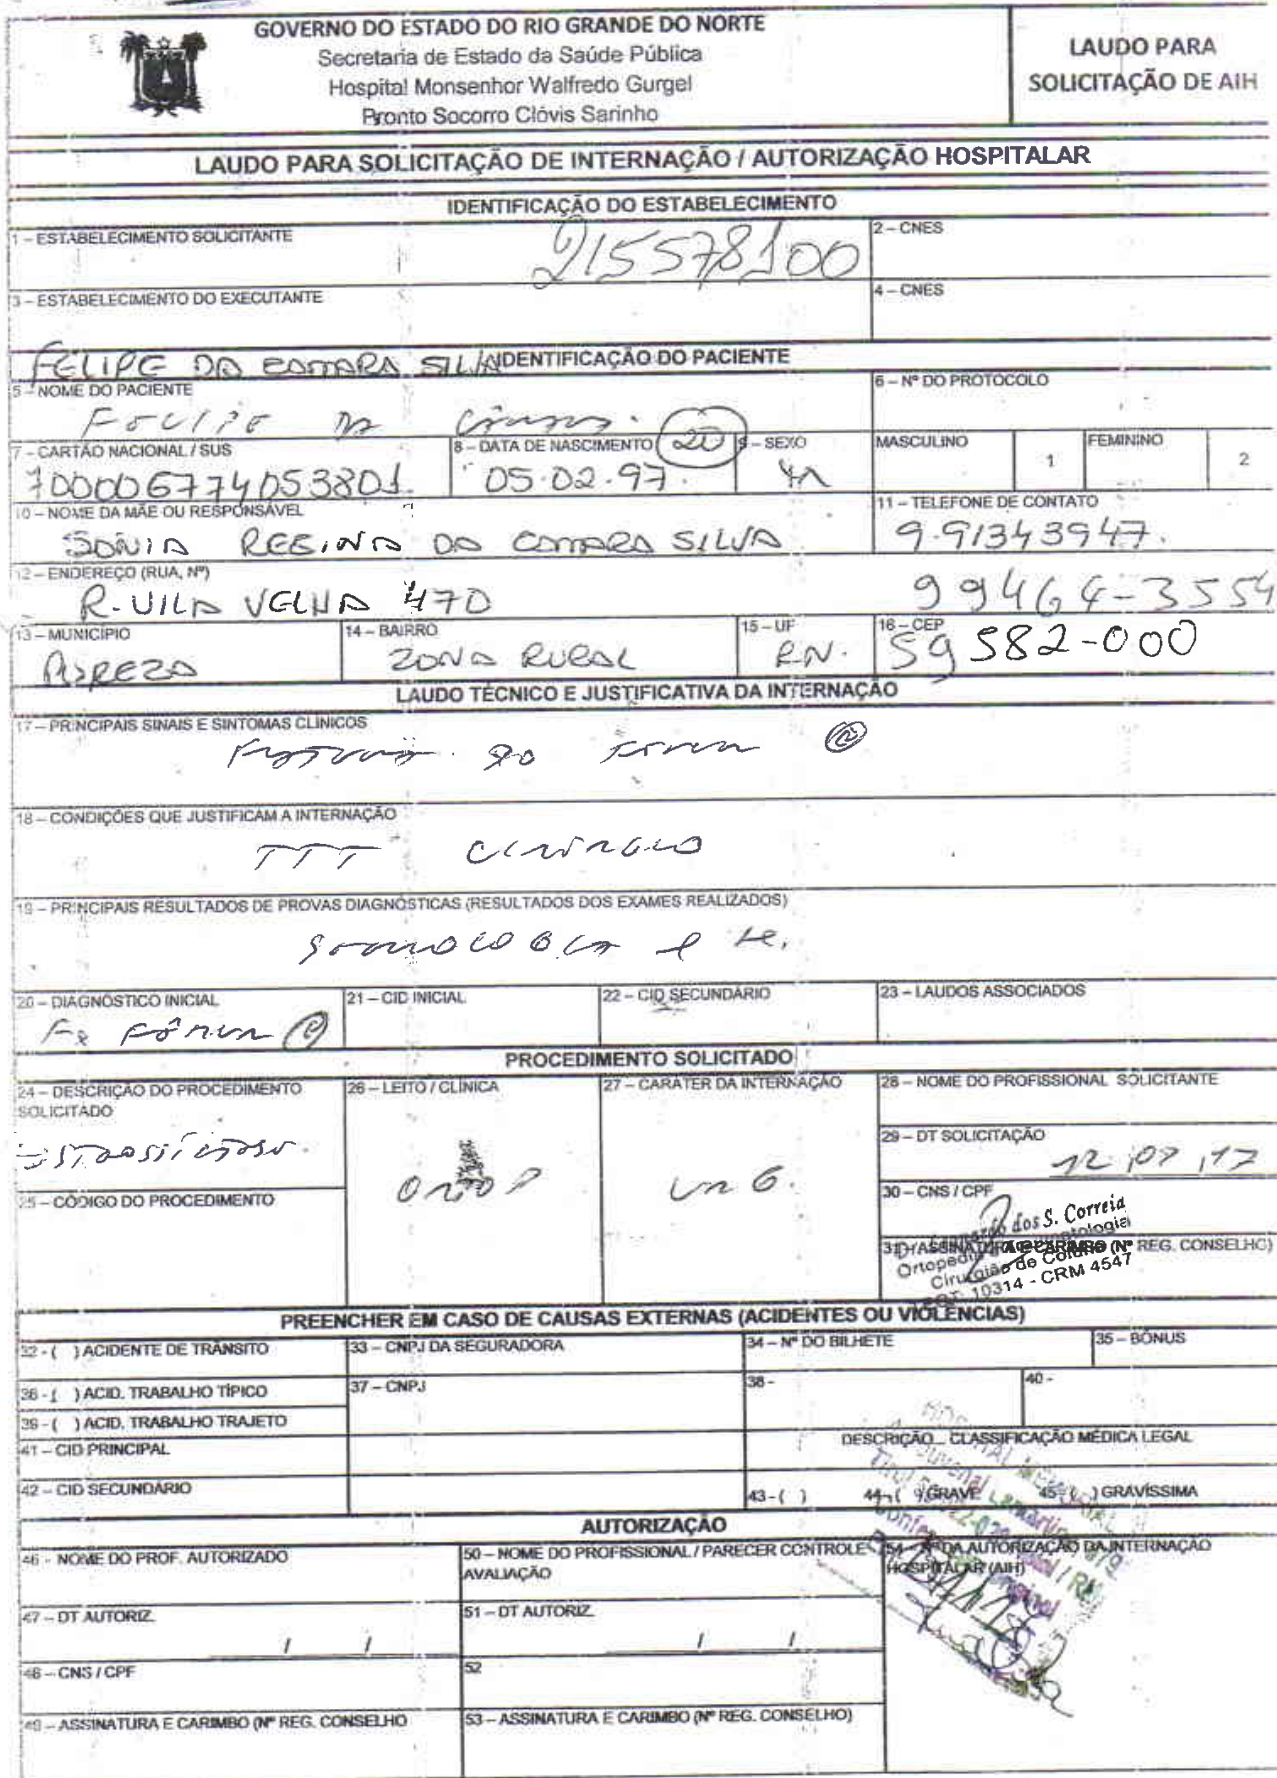 GOVERNO DO ESTADO DO RIO GRANDE DO NORTE
Secretaria de Estado da Saúde Pública
Hospital Monsenhor Walfredo Gurgel
Pronto Socorro Clóvis Sarinho
LAUDO PARA
SOLICITAÇÃO DE AIH
LAUDO PARA SOLICITAÇÃO DE INTERNAÇÃO / AUTORIZAÇÃO HOSPITALAR
IDENTIFICAÇÃO DO ESTABELECIMENTO
1 – ESTABELECIMENTO SOLICITANTE
215578100
2 – CNES
3 – ESTABELECIMENTO DO EXECUTANTE
4 – CNES
FELIPE DA CAMARA SILVA
IDENTIFICAÇÃO DO PACIENTE
5 – NOME DO PACIENTE
Felipe da Câmara
6 – Nº DO PROTOCOLO
7 – CARTÃO NACIONAL / SUS
700006774053801
8 – DATA DE NASCIMENTO 20
05.02.97.
9 – SEXO
M
MASCULINO 1
FEMININO 2
10 – NOME DA MÃE OU RESPONSÁVEL
SONIA REGINA DA CAMARA SILVA
11 – TELEFONE DE CONTATO
9.91343947.
12 – ENDEREÇO (RUA, Nº)
R. VILA VELHA 470
99464-3554
13 – MUNICÍPIO
14 – BAIRRO
ZONA RURAL
15 – UF
RN.
16 – CEP
59582-000
LAUDO TÉCNICO E JUSTIFICATIVA DA INTERNAÇÃO
17 – PRINCIPAIS SINAIS E SINTOMAS CLÍNICOS
18 – CONDIÇÕES QUE JUSTIFICAM A INTERNAÇÃO
TTT
19 – PRINCIPAIS RESULTADOS DE PROVAS DIAGNÓSTICAS (RESULTADOS DOS EXAMES REALIZADOS)
20 – DIAGNÓSTICO INICIAL
21 – CID INICIAL
22 – CID SECUNDÁRIO
23 – LAUDOS ASSOCIADOS
PROCEDIMENTO SOLICITADO
24 – DESCRIÇÃO DO PROCEDIMENTO
SOLICITADO
26 – LEITO / CLÍNICA
27 – CARÁTER DA INTERNAÇÃO
28 – NOME DO PROFISSIONAL SOLICITANTE
29 – DT SOLICITAÇÃO
25 – CÓDIGO DO PROCEDIMENTO
30 – CNS / CPF
dos S. Correia
31 – ASSINATURA E CARIMBO (Nº REG. CONSELHO)
Cirurgião de Coluna
10314 - CRM 4547
PREENCHER EM CASO DE CAUSAS EXTERNAS (ACIDENTES OU VIOLÊNCIAS)
32 - ( ) ACIDENTE DE TRÂNSITO
33 – CNPJ DA SEGURADORA
34 – Nº DO BILHETE
35 – BÔNUS
36 - ( ) ACID. TRABALHO TÍPICO
37 – CNPJ
38 -
40 -
39 - ( ) ACID. TRABALHO TRAJETO
41 – CID PRINCIPAL
DESCRIÇÃO CLASSIFICAÇÃO MÉDICA LEGAL
42 – CID SECUNDÁRIO
43 - ( )
44 - ( ) GRAVE
45 - ( ) GRAVÍSSIMA
AUTORIZAÇÃO
46 - NOME DO PROF. AUTORIZADO
50 – NOME DO PROFISSIONAL / PARECER CONTROLE
AVALIAÇÃO
54 – Nº DA AUTORIZAÇÃO DA INTERNAÇÃO
HOSPITALAR (AIH)
47 – DT AUTORIZ.
/ /
51 – DT AUTORIZ.
/ /
48 – CNS / CPF
52
49 – ASSINATURA E CARIMBO (Nº REG. CONSELHO
53 – ASSINATURA E CARIMBO (Nº REG. CONSELHO)